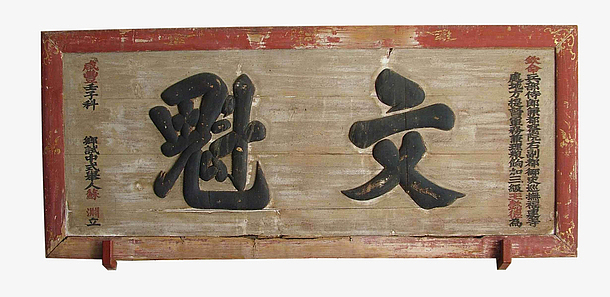 欽命兵部侍郎兼都察院右副都御史巡撫福建等
處地方提督軍務兼理糧餉加三級王懿德為
文魁
咸豐壬子科 鄉試中式舉人 立